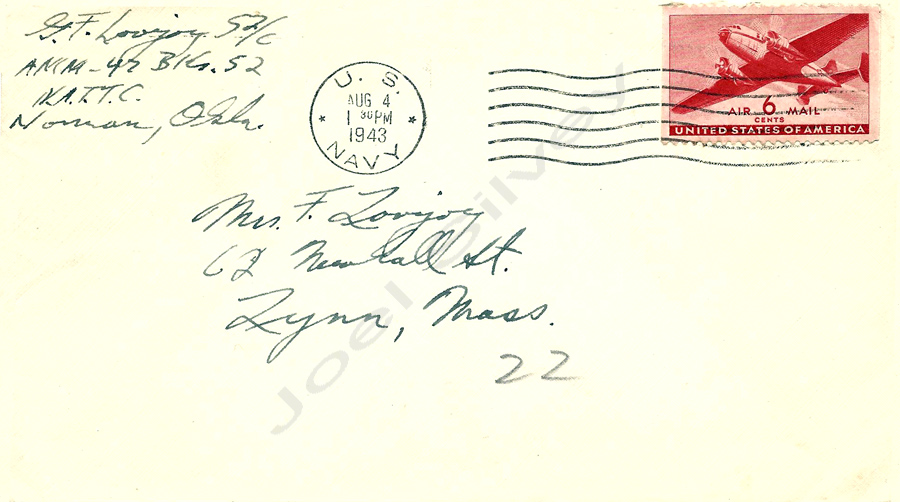 G. F. Lovejoy S2/c
AMM-47 Bks. 52
N.A.T.T.C.
Norman, Okla.
U. S.
AUG 4
1 30PM
1943
NAVY
AIR 6 MAIL
CENTS
UNITED STATES OF AMERICA
Mrs. F. Lovejoy
62 Newhall St.
Lynn, Mass.
22
Joel Gilvey